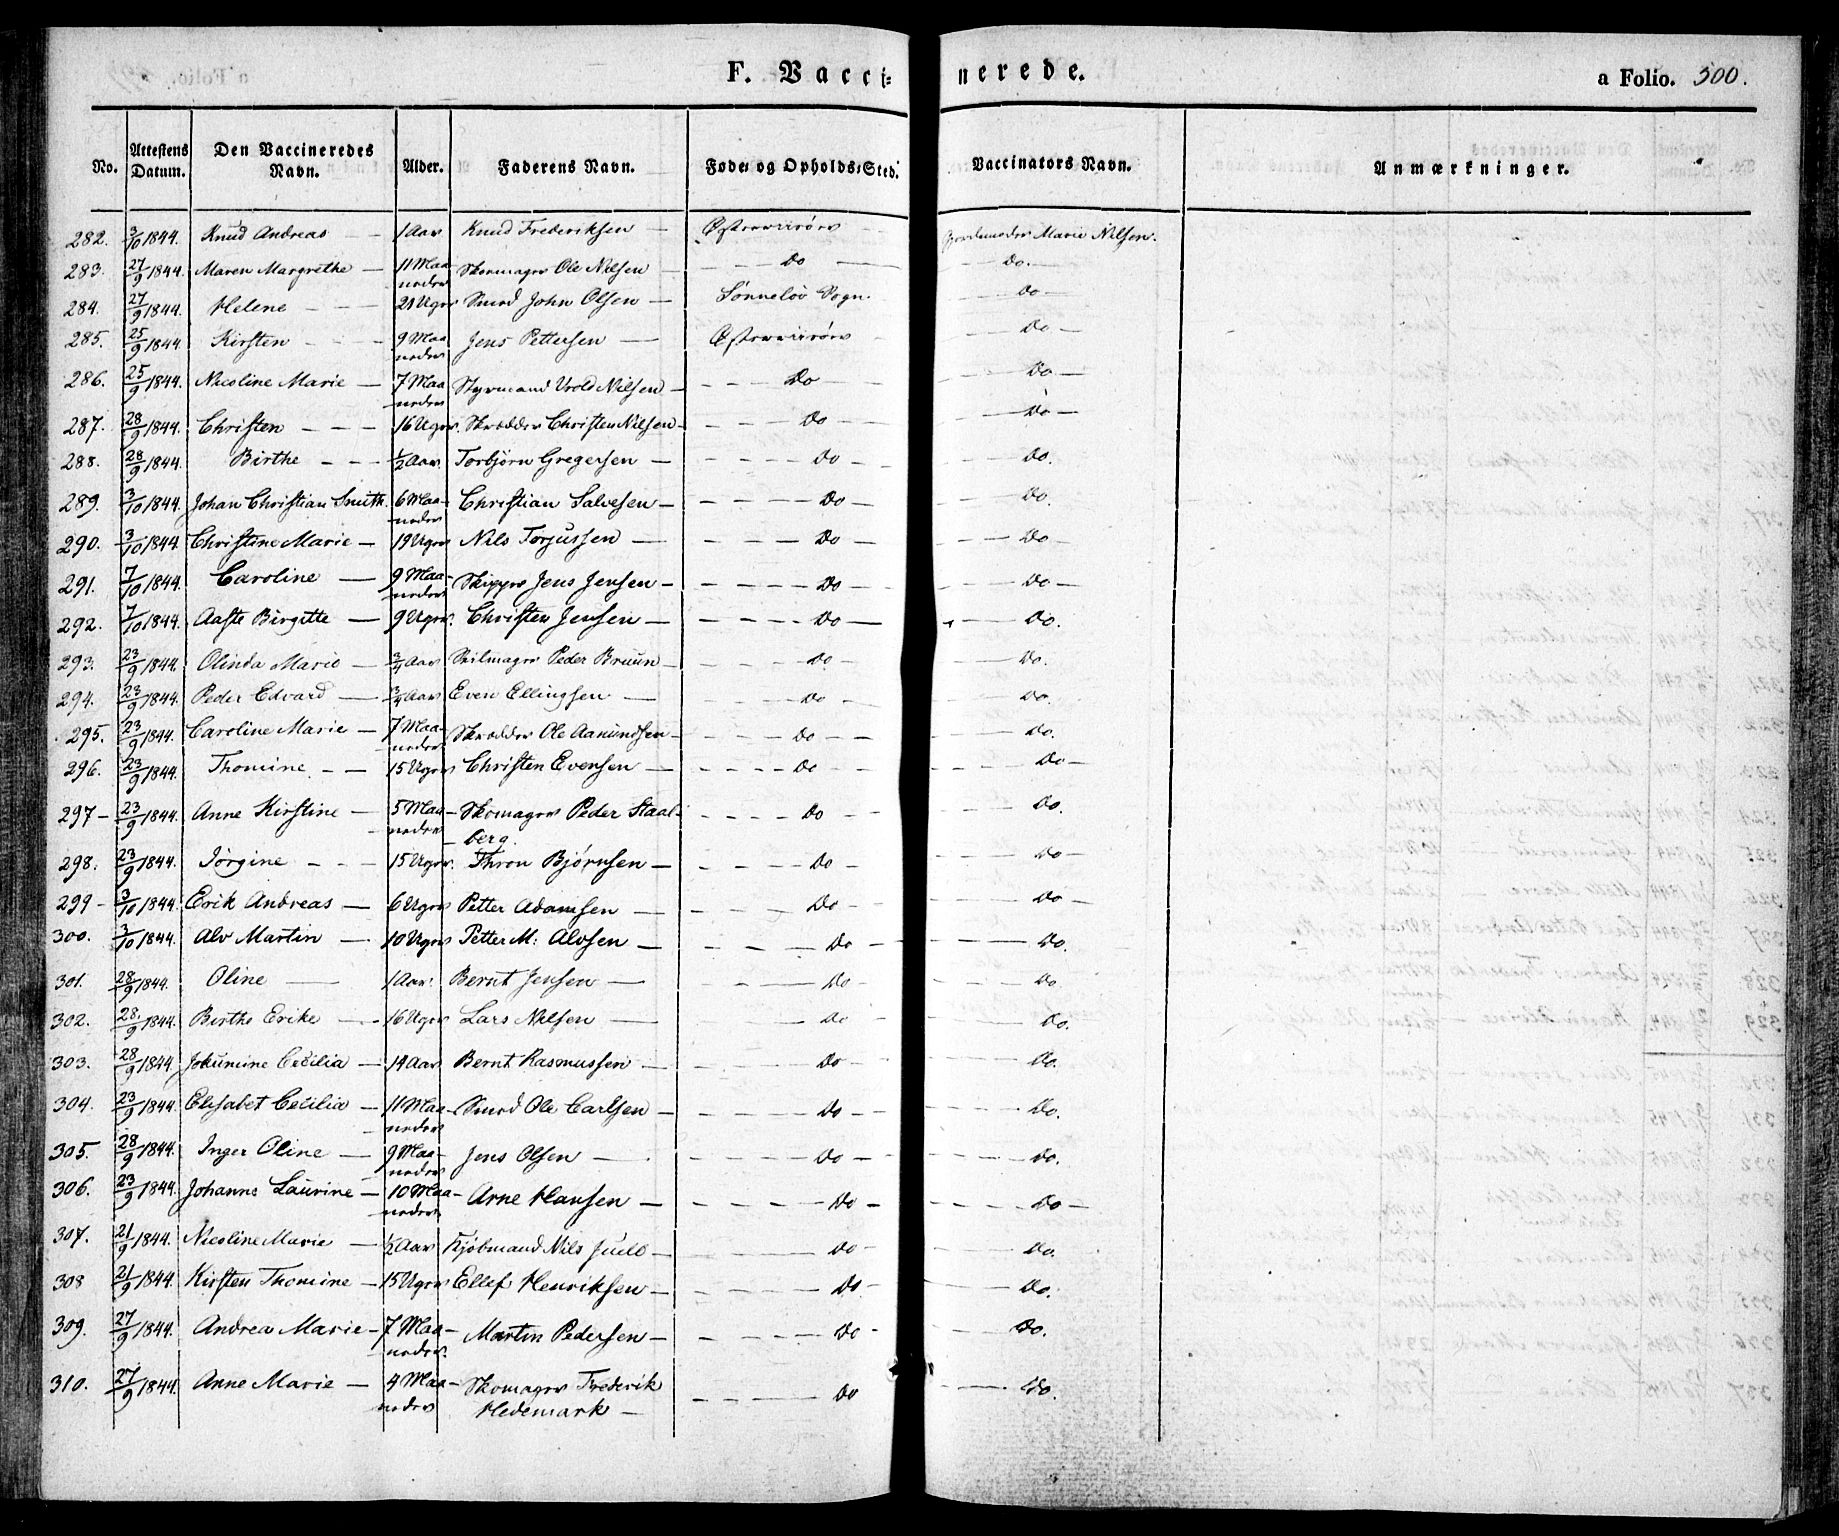 F. Vacci- nerede. a Folio. 300.
No. Attestens Datum. Den Vaccineredes Navn. Alder. Faderens Navn. Føde- og Opholds-Sted. Vaccinators Navn. Anmærkninger.
282. 3/10 1844. Knud Andreas — 1 Aar Knud Frederiksen — Østerriisöer Marie Nilsen.
283. 27/9 1844. Maren Margrethe — 11 Maaneder Skomager Ole Nilsen — Do — Do. —
284. 27/9 1844. Helene — 21 Uger Smed John Olsen — Sønneløv Sogn. — Do —
285. 25/9 1844. Kirsten — 9 Maaneder Jens Pettersen — Østerriisöer — Do —
286. 25/9 1844. Nicoline Marie — 7 Maaneder Styrmand Vrold Nilsen — Do — Do —
287. 28/9 1844. Christen — 16 Uger. Skrædder Christen Nilsen — Do — Do —
288. 28/9 1844. Birthe — 1/2 Aar. Torbjörn Gregersen — Do — Do.
289. 3/10 1844. Johan Christian Smith. 6 Maaneder Christian Salvesen — Do — Do.
290. 3/10 1844. Christine Marie — 19 Uger Nils Torjussen — Do — Do —
291. 7/10 1844. Caroline — 9 Maaneder Skipper Jens Jensen — Do — Do —
292. 7/10 1844. Aaste Birgitte — 9 Uger. Christen Jensen — Do — Do.
293. 23/9 1844. Olinda Marie — 3/4 Aar Seilmager Peder Bruun — Do — Do.
294. 23/9 1844. Peder Edvard — 3/4 Aar Even Ellingsen — Do — Do.
295. 23/9 1844. Caroline Marie — 7 Maaneder Skrædder Ole Aanundsen — Do — Do.
296. 23/9 1844. Thomine — 15 Uger Christen Evensen — Do — Do —
297 — 23/9 1844. Anne Kirstine — 5 Maaneder Skomager Peder Staalberg. — Do — Do.
298. 23/9 1844. Jörgine — 15 Uger. Thron Bjørnsen — Do — Do —
299 — 3/10 1844. Erik Andreas — 6 Uger Petter Adamsen — Do — Do —
300. 3/10 1844. Alv Martin — 10 Uger Petter M: Alvsen — Do — Do.
301. 28/9 1844. Oline — 1 Aar. Bernt Jensen — Do — Do.
302. 28/9 1844. Birthe Erike — 16 Uger Lars Nilsen — Do — Do.
303. 28/9 1844. Jokumine Cecilia — 14 Aar Bernt Rasmussen — Do — Do.
304. 23/9 1844. Elisabet Cecilia — 11 Maaneder Smed Ole Carlsen — Do — Do.
305. 28/9 1844. Inger Oline — 9 Maaneder Jens Olsen — Do — Do.
306. 23/9 1844. Johanne Laurine — 10 Maaneder Arne Hansen — Do — Do —
307. 21/9 1844. Nicoline Marie — 1/2 Aar Kjöbmand Nils Juell — Do — Do.
308 21/9 1844. Kirsten Thomine — 15 Uger Ellef Henriksen — Do — Do.
309. 27/9 1844. Andrea Marie — 7 Maaneder. Martin Pedersen — Do — Do.
310. 27/9 1844. Anne Marie — 4 Maaneder Skomager Frederik Hedemark — Do — Do.